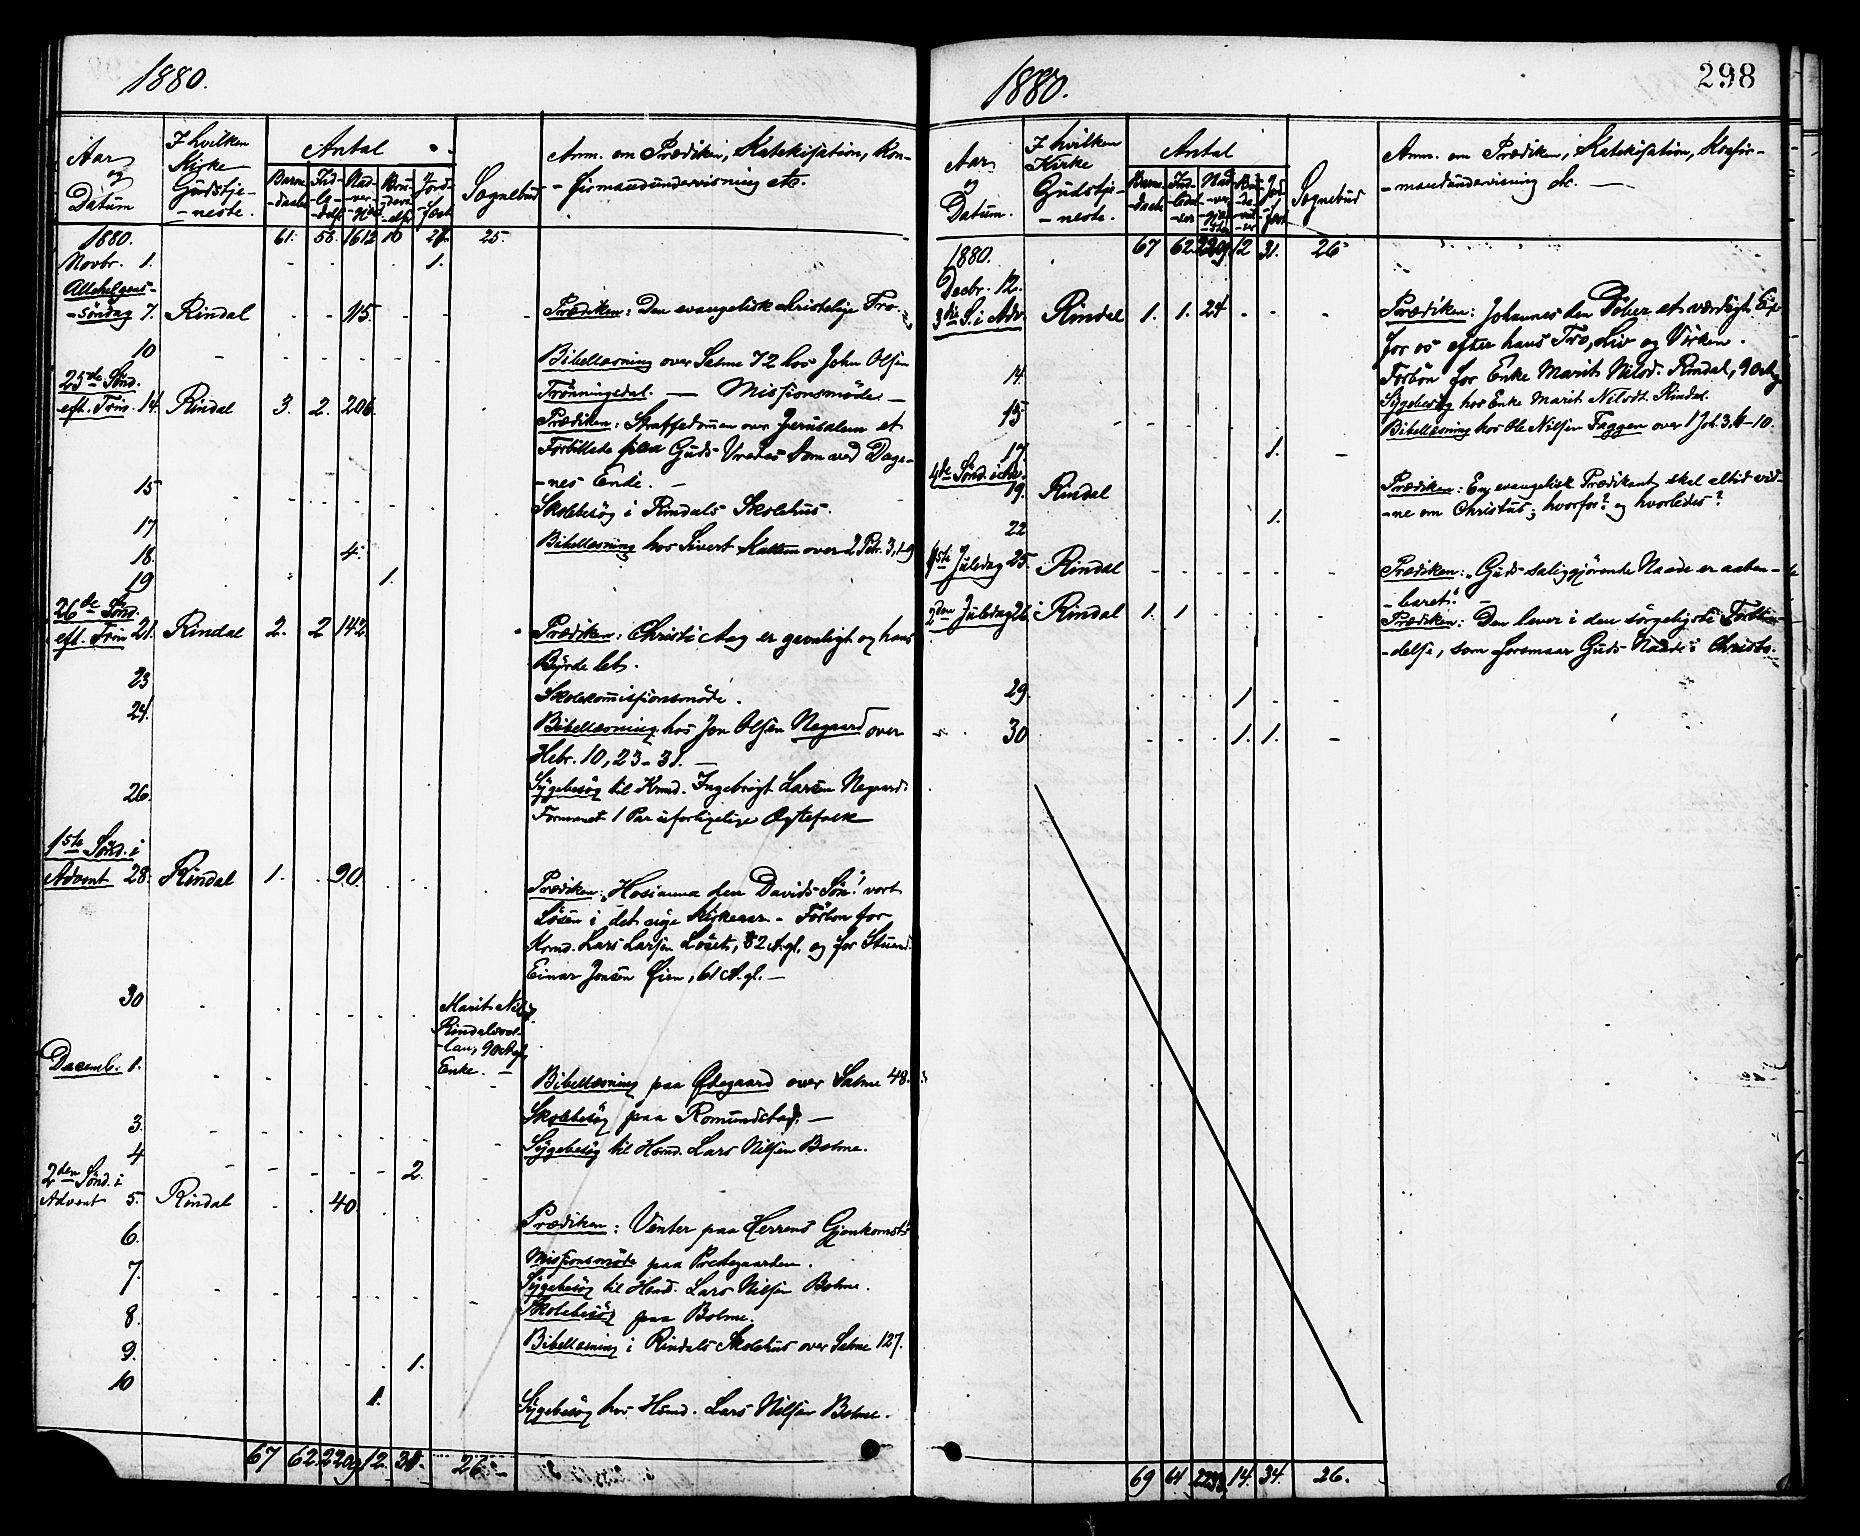 1880.
Aar og Datum
I hvilken Kirke Gudstjeneste.
Antal
Sognebud
Anm. om Prædiken, Katekisation, Kon-
-firmandundervisning etc.
1880. 61. 58. 1612 10 25.
Novbr. 1. 1.
Allehelgens-
-söndag 7. Rindal 115. Prædiken: Den evangelisk christelige Tro.
10 Bibellæsning over Salme 72 hos John Olsen
25de Sönd. Trönningedal. — Missionsmöde —
eft. Trin. 14. Rindal 3. 2. 206. Prædiken: Straffedommen over Jerusalem et
Forbillede paa Guds Vredes Dom ved Dage-
-nes Ende. —
15 Skolebesög i Rindals Skolehus.
17 Bibellæsning hos Sivert over 2 Petr. 3, 1-9
18. 4.
19 1.
26de Sönd.
eft. Trin 21. Rindal 2. 2 142. Prædiken: Christi Aag er gavnligt og hans
Byrde let.
23 Skolekommissionsmöde.
24. Bibellæsning hos Jon Olsen Negaard over
Hebr. 10, 23-31. —
26. Sygebesög til Kmd. Ingebrigt Larsen Negaard.
Formanet 1 Par uforligelige Ægtefolk
1ste Sönd. i
Advent 28. Rindal 1. 90. Prædiken: „Hosianna den Davids Sön!" vort
Lösen i det nye Kirkeaar. - Forbön for
Kmd. Lars Larsen Löset, 82 A. gl. og for
Einar Jonsen Øien, 61 A. gl. —
30 Marit Nilsd.
Enke. —
Decemb. 1. Bibellæsning paa Ødegaard over Salme 48.
3. Skolebesög paa Romundstad. —
4 Sygebesög til Hsmd. Lars Nilsen Bolme.
2den Sönd. i 2.
Advent 5. Rindal 40. Prædiken: Venter paa Herrens Gjenkomst!
6. Missionsmöde paa Prestegaarden.
7. Sygebesög til Hsmd. Lars Nilsen Bolme.
8. Skolebesög paa Bolme.
9. 1. Bibellæsning i Rindals Skolehus over Salme 127.
10 1. Sygebesög hos Hsmd. Lars Nilsen Bolme.
67 62. 2209 12. 26.
298
1880.
Aar og Datum.
I hvilken Kirke Gudstje-
-neste.
Antal
Sognebud
Anm. om Prædiken, Katekisation, Konfir-
-mandundervisning etc. —
1880. 67 62. 2209. 12 31. 26
Decbr. 12.
3die S. i Adv. Rindal 1. 1. 24 Prædiken: Johannes den Döber et værdigt
for os efter hans Tro, Liv og Virken.
14. Forbön for Enke Marit Nilsd. Rindal, 90 A. g.
Sygebesög hos Enke Marit Nilsdt. Rindal.
15 Bibellæsning hos Ole Nilsen Faggen over 1 Joh. 3, 4-10.
17. 1.
4de Sönd. i Adv.
19. Rindal Prædiken: En evangelisk Prædikant skal altid vid-
-ne om Christus; hvorfor? og hvorledes?
22 1.
1ste Juledag 25. Rindal Prædiken: „Guds saliggjørende Naade er aaben-
-baret." —
2den Juledag 26. Rindal 1. 1 Prædiken: Den lever i den sörgeligste
-delse, som forsmaar Guds Naade i Christo.
29. 1
30 1. 1.
69 64 14. 34. 26.